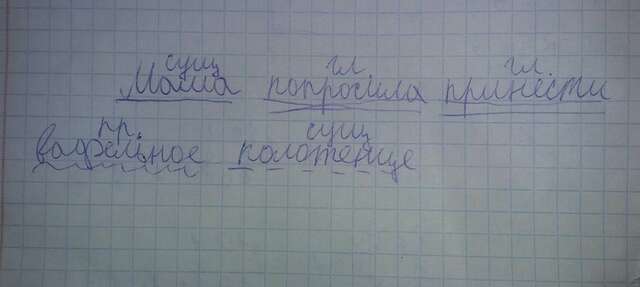 сущ гл гл.
Мама попросила принести
пр. сущ
вафельное колотенце